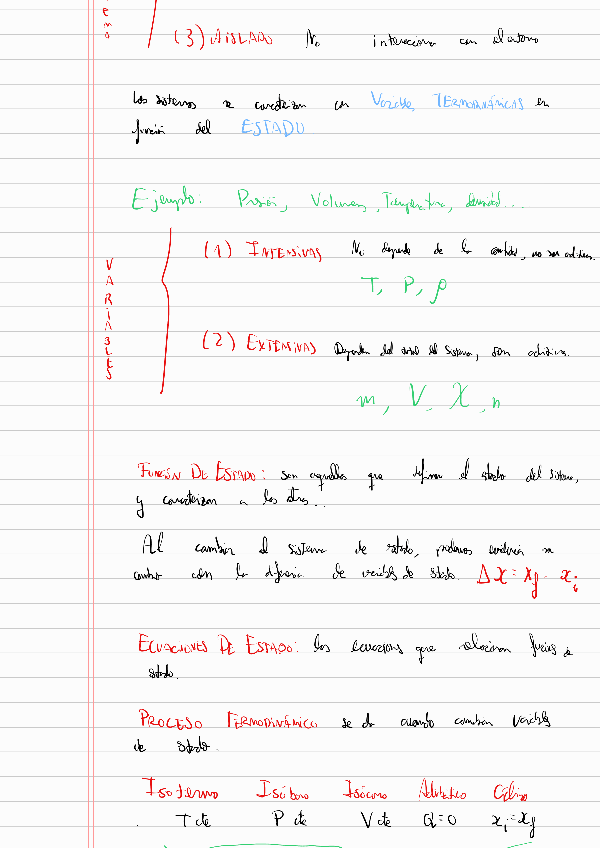 (3) AISLADO No interacciona con el entorno
Los sistemas se caracterizan con Variables TERMODINÁMICAS en
función del ESTADO
Ejemplo: Presión, Volumen, Temperatura, densidad...
VARIABLES
(1) INTENSIVAS No depende de la cantidad, no son aditivas.
T, P, ρ
(2) EXTENSIVAS Dependen del total del sistema, son aditivas.
m, V, X, n
FUNCIÓN DE ESTADO: son aquellas que definen el estado del sistema,
y caracterizan a las otras...
Al cambiar el sistema de estado, podemos evidenciar su
cambio con la diferencia de variables de estado. ΔX = X_f - X_i
ECUACIONES DE ESTADO: las ecuaciones que relacionan funciones de
estado.
PROCESO TERMODINÁMICO se da cuando cambian variables
de estado.
Isotermo Isóbaro Isócoro Adiabático Cíclico
T cte P cte V cte Q=0 x_i = x_f